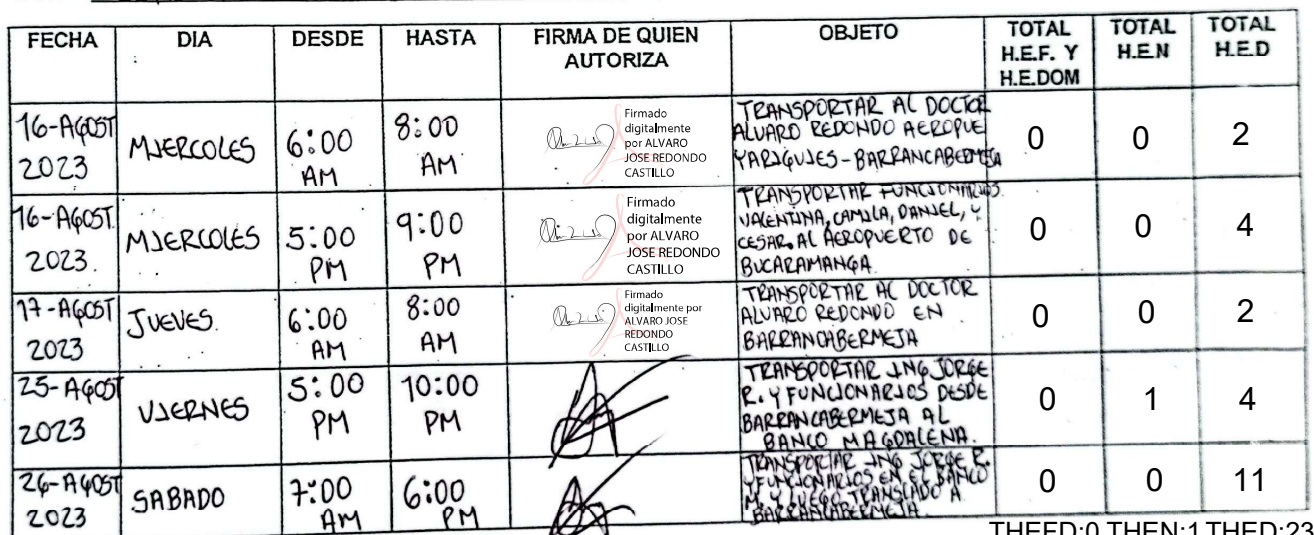 FECHA DIA DESDE HASTA FIRMA DE QUIEN AUTORIZA OBJETO TOTAL H.E.F. Y H.E.DOM TOTAL H.E.N TOTAL H.E.D
16-AGOST 2023 MIERCOLES 6:00 AM 8:00 AM
Firmado
digitalmente
por ALVARO
JOSE REDONDO
CASTILLO
TRANSPORTAR AL DOCTOR
ALVARO REDONDO AEROPUE
YARIGUIES-BARRANCABERMEJA
0 0 2
16-AGOST. 2023. MIERCOLES 5:00 PM 9:00 PM
Firmado
digitalmente
por ALVARO
JOSE REDONDO
CASTILLO
TRANSPORTAR FUNCIONARIOS.
VALENTINA, CAMILA, DANIEL, Y
CESAR, AL AEROPUERTO DE
BUCARAMANGA.
0 0 4
17-AGOST 2023 JUEVES. 6:00 AM 8:00 AM
Firmado
digitalmente por
ALVARO JOSE
REDONDO
CASTILLO
TRANSPORTAR AL DOCTOR
ALVARO REDONDO EN
BARRANCABERMEJA
0 0 2
25-AGOST 2023 VIERNES 5:00 PM 10:00 PM
TRANSPORTAR ING JORGE
R. Y FUNCIONARIOS DESDE
BARRANCABERMEJA AL
BANCO MAGDALENA.
0 1 4
26-AGOST 2023 SABADO 7:00 AM 6:00 PM
TRANSPORTAR ING JORGE R.
Y FUNCIONARIOS EN EL BANCO
M. Y LUEGO TRANSLADO A
BARRANCABERMEJA.
0 0 11
THEFD:0 THEN:1 THED:23